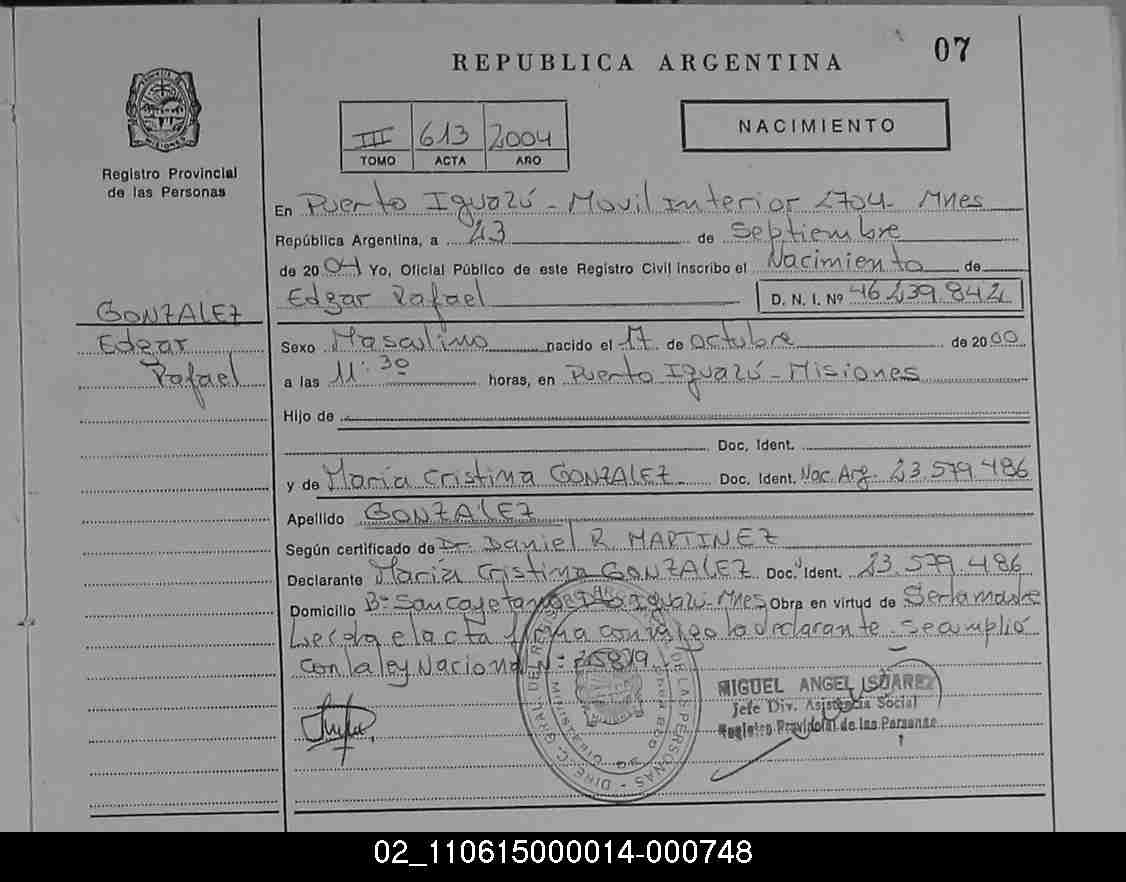 07
REPUBLICA ARGENTINA
III 613 2004
TOMO ACTA AÑO
NACIMIENTO
Registro Provincial
de las Personas
En Puerto Iguazú - Movil interior 2704 - Mnes
República Argentina, a 23 de Septiembre
de 2004 Yo, Oficial Público de este Registro Civil inscribo el Nacimiento de
Edgar Rafael D. N. I. Nº
GONZALEZ
Edgar
Rafael
Sexo Masculino nacido el 17 de octubre de 2000
a las 11:30 horas, en Puerto Iguazú - Misiones
Hijo de
Doc. Ident.
y de María Cristina GONZALEZ Doc. Ident. Nac. Arg. 23.579.486
Apellido GONZALEZ
Según certificado de Dr. Daniel R. MARTINEZ
Declarante María Cristina GONZALEZ Doc. Ident. 23.579.486
Domicilio Bº San Cayetano Iguazú - Mnes Obra en virtud de Ser la madre
Leida el acta firma conmigo la declarante. Se cumplió
con la ley Nacional Nº:
MIGUEL ANGEL SUAREZ
Jefe Div. Asistencia Social
Registro Provincial de las Personas
02_110615000014-000748